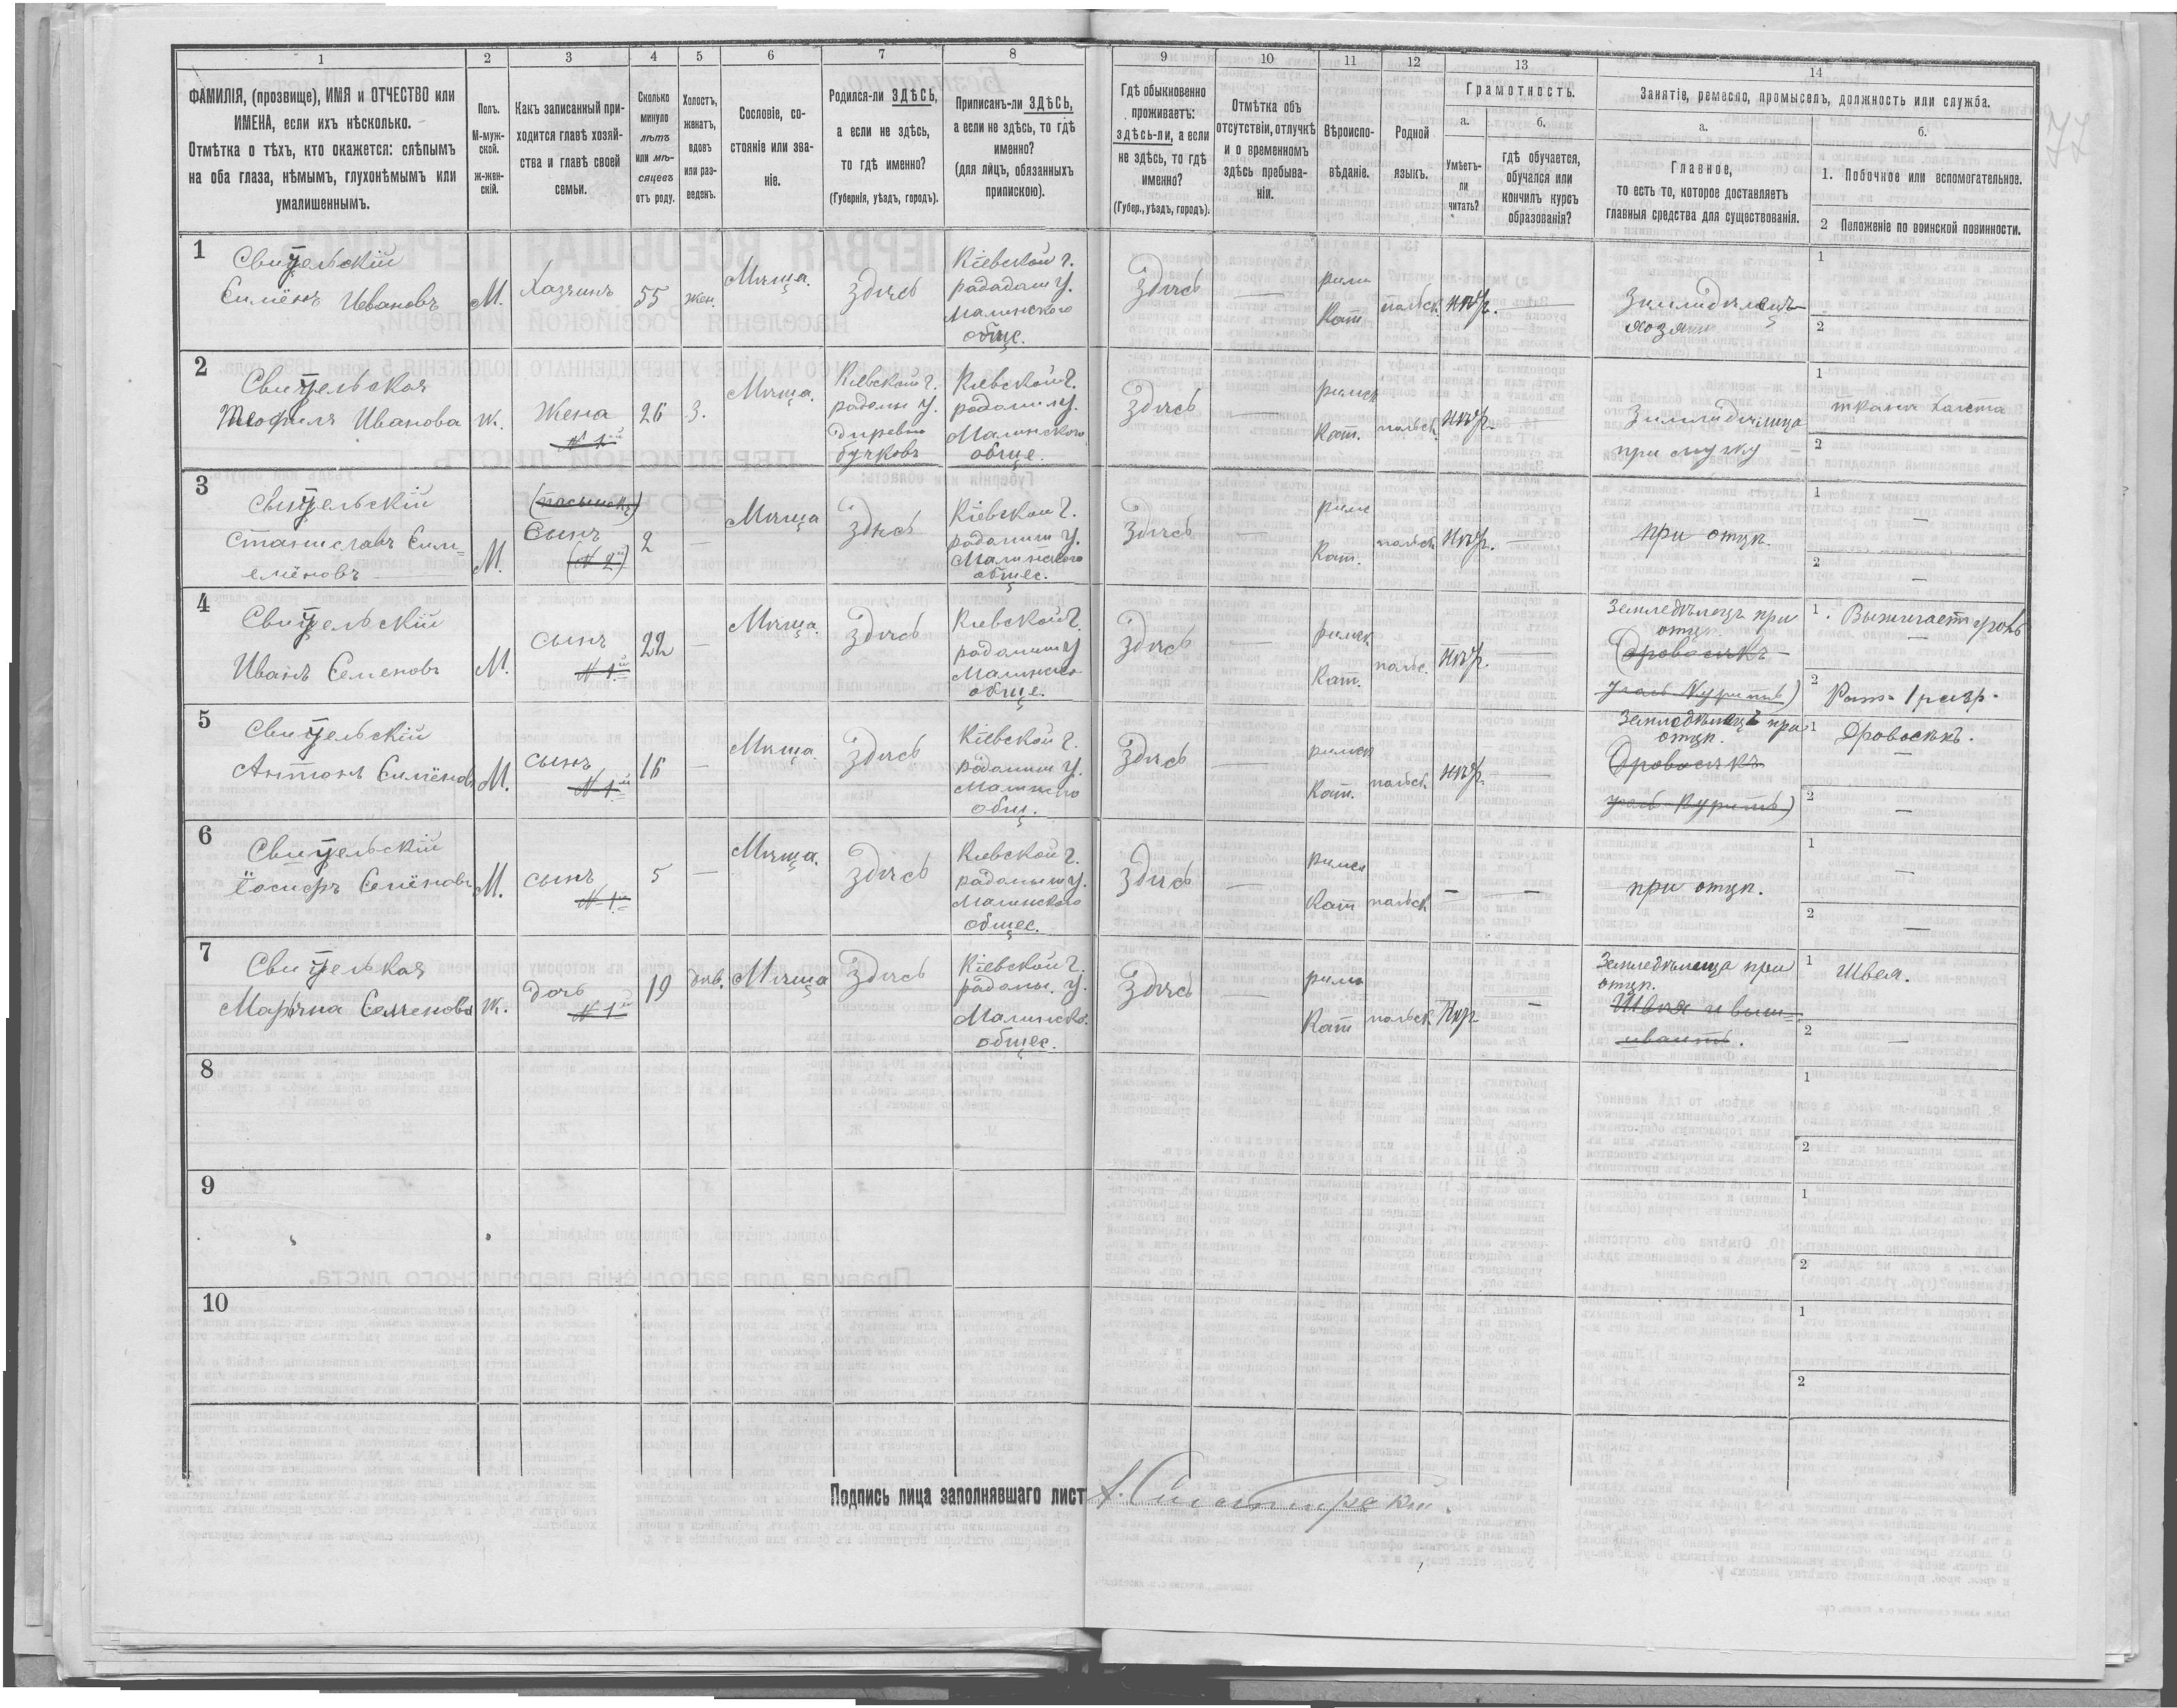 1 2 3 4 5 6 7 8 9 10 11 12 13 14
ФАМИЛІЯ, (прозвище), ИМЯ и ОТЧЕСТВО или
ИМЕНА, если ихъ нѣсколько.
Отмѣтка о тѣхъ, кто окажется: слѣпымъ
на оба глаза, нѣмымъ, глухонѣмымъ или
умалишеннымъ.
Полъ.
М-муж-
ской.
ж-жен-
скій.
Какъ записанный при-
ходится главѣ хозяй-
ства и главѣ своей
семьи.
Сколько
минуло
лѣтъ
или мѣ-
сяцевъ
отъ роду.
Холостъ,
женатъ,
вдовъ
или раз-
веденъ.
Сословіе, со-
стояніе или зва-
ніе.
Родился-ли ЗДѢСЬ,
а если не здѣсь,
то гдѣ именно?
(Губернія, уѣздъ, городъ).
Приписанъ-ли ЗДѢСЬ,
а если не здѣсь, то гдѣ
именно?
(для лицъ, обязанныхъ
припискою).
Гдѣ обыкновенно
проживаетъ:
здѣсь-ли, а если
не здѣсь, то гдѣ
именно?
(Губер., уѣздъ, городъ).
Отмѣтка объ
отсутствіи, отлучкѣ
и о временномъ
здѣсь пребыва-
ніи.
Вѣроиспо-
вѣданіе.
Родной
языкъ.
Грамотность.
а.
Умѣетъ-
ли
читать?
б.
гдѣ обучается,
обучался или
кончилъ курсъ
образованія?
Занятіе, ремесло, промыселъ, должность или служба.
а.
Главное,
то есть то, которое доставляетъ
главныя средства для существованія.
б.
1. Побочное или вспомогательное.
2 Положеніе по воинской повинности.
77
1
Свицельскій
Симёнъ Ивановъ
М.
Хазяинъ
55
жен.
Мѣща.
Здѣсь
Кіевской г.
Малинского
обще.
Здѣсь
—
Кат
польск.
нѣгр.
—
хозяин
1
2
2
Свицельская
Теофиля Иванова
ж.
Жена
№ 1й
26
З.
Мѣща.
Кіевской г.
Киевской г.
Малинского
обще.
Здѣсь
—
римск
Кат.
польск.
нѣгр.
—
при мужу
1
ткани холста
2
3
Свицельскій
Станиславъ Сим=
емёновъ
М.
(пасынокъ)
Сынъ
(№ 2й)
2
—
Мѣща
Здѣсь
Кіевской г.
Малинского
общес.
Здѣсь
—
римс
Кат.
польск
нѣгр.
—
при отцѣ.
1
—
2
—
4
Свицельскій
Иванъ Семеновъ
М.
сынъ
№ 1й
22
—
Мѣща.
Здѣсь
Киевской г.
обще.
Здѣсь
—
римск
Кат.
польс.
нѣгр.
—
Земледѣлецъ при
отцѣ.
(Дровосѣкъ
уголь Курить)
1. Выжигает уголь
—
2 Рат. 1 разр.
5
Свицельскій
Антонъ Симёновъ
М.
сынъ
№ 1й
16
—
Мѣща.
Здѣсь
Кіевской г.
общ.
Здѣсь
—
римск
Кат.
польск
нѣгр.
—
Земледѣлецъ при
отцѣ.
(Дровосѣкъ
уголь Курить)
1 Дровосѣкъ.
—
2
—
6
Свицельскій
Іосифъ Семёновъ
М.
сынъ
№ 1й
5
—
Мѣща.
Здѣсь
Киевской г.
Малинского
общес.
Здѣсь
—
римск
Кат
польск
—
—
при отцѣ.
1
—
2
—
7
Свицельская
Марѣяна Семенова
ж.
дочь
№ 1й
19
дѣв.
Мѣща
Здѣсь
Кіевской г.
общес.
Здѣсь
—
Кат
польск
—
Земледѣлица при
отцѣ.
1 Швея.
2
—
8
1
2
9
1
2
10
1
2
Подпись лица заполнявшаго лист